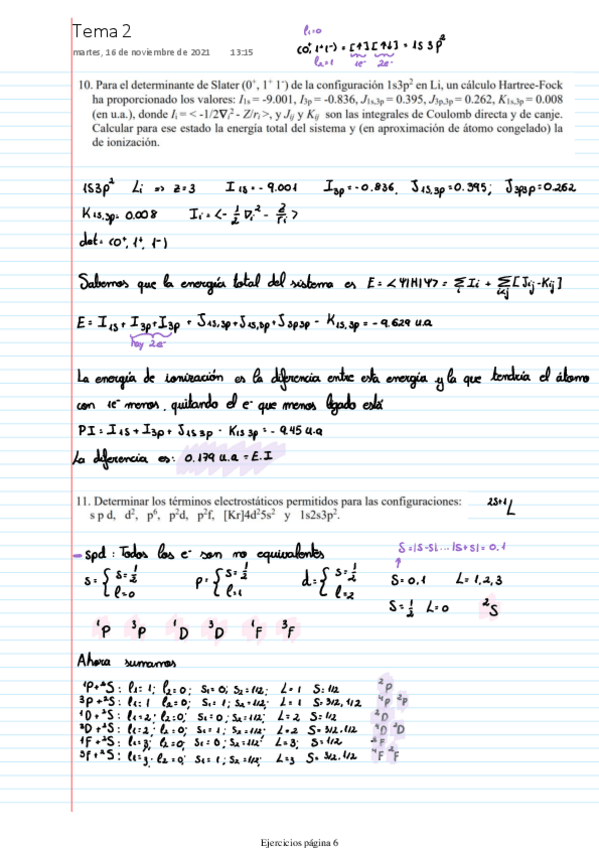 Tema 2
martes, 16 de noviembre de 2021 13:15
l₁=0
(0⁺, 1⁺ 1⁻) = [↑] [↑↓] = 1s 3p²
l₂=1 1e⁻ 2e⁻
10. Para el determinante de Slater (0⁺, 1⁺ 1⁻) de la configuración 1s3p² en Li, un cálculo Hartree-Fock
ha proporcionado los valores: I₁ₛ = -9.001, I₃ₚ = -0.836, J₁ₛ,₃ₚ = 0.395, J₃ₚ,₃ₚ = 0.262, K₁ₛ,₃ₚ = 0.008
(en u.a.), donde Iᵢ = < -1/2∇ᵢ² - Z/rᵢ >, y Jᵢⱼ y Kᵢⱼ son las integrales de Coulomb directa y de canje.
Calcular para ese estado la energía total del sistema y (en aproximación de átomo congelado) la
de ionización.
1s3p² Li => z=3 I1s = -9.001 I3p = -0.836, J1s,3p = 0.395; J3p3p = 0.262
K1s,3p = 0.008 Ii = <-1/2 ∇i² - z/ri>
det = (0⁺, 1⁺, 1⁻)
Sabemos que la energía total del sistema es E = <Ψ|H|Ψ> = Σi Ii + Σi<j [Jij - Kij]
E = I1s + I3p + I3p + J1s,3p + J1s,3p + J3p3p - K1s,3p = -9.629 u.a
hay 2e⁻
La energía de ionización es la diferencia entre esta energía y la que tendría el átomo
con 1e⁻ menos, quitando el e⁻ que menos ligado está
PI = I1s + I3p + J1s3p - K1s3p = -9.45 u.a
La diferencia es: 0.179 u.a = E.I
11. Determinar los términos electrostáticos permitidos para las configuraciones:
s p d, d², p⁶, p²d, p²f, [Kr]4d²5s² y 1s2s3p².
²ˢ⁺¹L
- spd: Todos los e⁻ son no equivalentes
S = |s-s| ... |s+s| = 0, 1
s = { s=1/2 l=0 p = { s=1/2 l=1 d = { s=1/2 l=2 S=0,1 L=1,2,3
S=1/2 L=0 ²S
¹P ³P ¹D ³D ¹F ³F
Ahora sumamos
¹P+²S: l1=1; l2=0; s1=0; s2=1/2; L=1 S=1/2 ²P
³P+²S: l1=1 l2=0; s1=1; s2=1/2; L=1 S=3/2, 1/2 ⁴P ²P
¹D+²S: l1=2; l2=0; s1=0; s2=1/2; L=2 S=1/2 ²D
³D+²S: l1=2; l2=0; s1=1; s2=1/2; L=2 S=3/2, 1/2 ⁴D ²D
¹F+²S: l1=3; l2=0; s1=0; s2=1/2; L=3; S=1/2 ²F
³F+²S: l1=3; l2=0; s1=1; s2=1/2; L=3 S=3/2, 1/2 ⁴F ²F
Ejercicios página 6